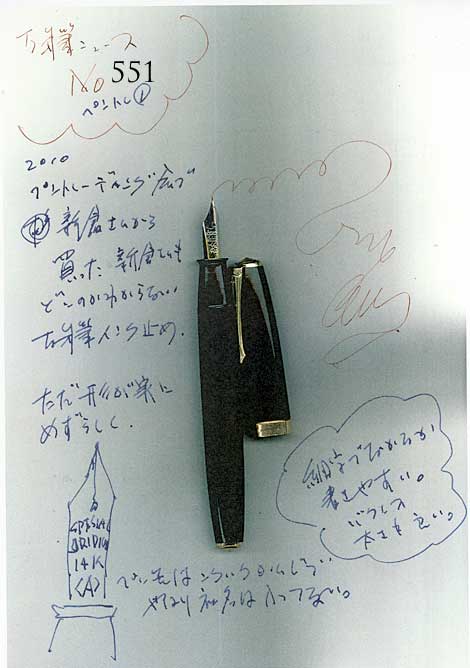 万年筆ニュース
No 551
ペントレ①
2010
ペントレーディング
新倉さんから
買った 新倉さんも
どこのかわからない
万年筆
ただ形が実に
めずらしく.
SPECIAL
IRIDIUM
14K
<A>
細字でなかなか
書きやすい。
バランス
太さも良い。
ペン先は
やはり社名は入ってない。